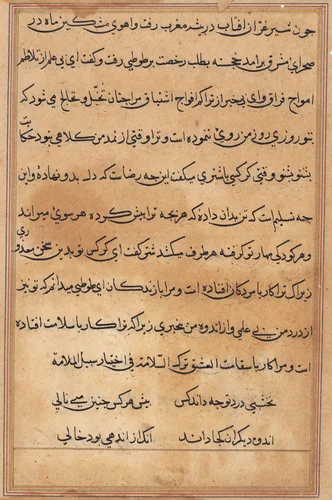 چون شیر غزاله افتاب در بیشه مغرب رفت و اهوی مشکین ماه در
صحرای مشرق برامد خجسته بطلب رخصت بر طوطی رفت و گفت ای بی غم از تلاطم
امواج فراق وای بی خبر از تراکم افواج اشتیاق مرا چنان تخیل و تخالج می شود که
بتو روزی روز من روی ننموده است و ترا وقتی از ند من کلاهی بود حکایت
بتو بشنو وقتی کرکسی با شتری میگفت این چه رضاست که دل بدو نهاده و این
چه تسلیم است که تن بدان داده که هر بچه ترا بیش کرده هر سوی میراند
و هر کودکی مهار تو گرفته هر طرف میکشد شتر گفت ای کرکس تو بدین سخن معذوری
زیراک ترا کار با مردکان افتاده است و مرا با زندکان ای طوطی میدانم که تو نیز
از درد من بی علمی و از اندوه من بیخبری زیراکه ترا کار با سلامت افتاده
است و مرا کار با سقامت العشق ترک السلامة فی اختیار سبیل الملامة
نخشبی درد تو چه داند کس
پیش هر کس چنین می نالی
اندوه دیگران کجا داند
انک از اندهی بود خالی